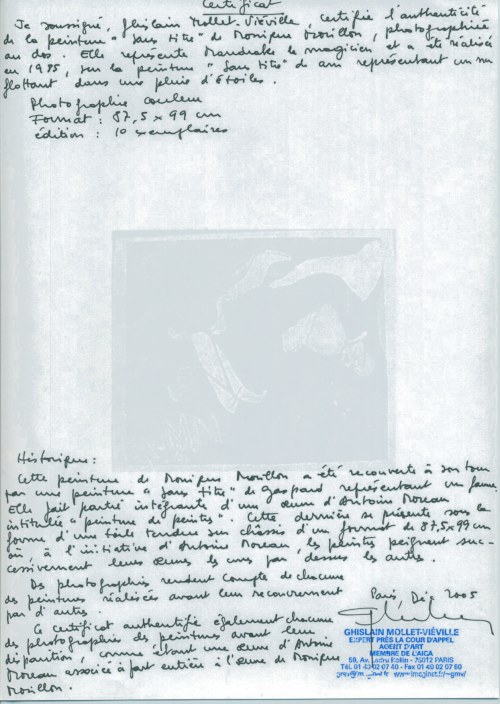 Certificat
Je soussigné, Ghislain Mollet-Viéville, certifie l'authenticité
de la peinture "Sans titre" de Monique Morillon, photographiée
au dos. Elle représente Mandrake le magicien et a été réalisée
en 1975, sur la peinture "Sans titre" de ami représentant un nu
flottant dans une pluie d'étoiles.
Photographie couleur
Format : 87,5 x 99 cm
édition : 10 exemplaires
Historique :
Cette peinture de Monique Morillon a été recouverte à son tour
par une peinture "Sans titre" de Gaspard représentant un
Elle fait partie intégrante d'une œuvre d'Antoine Moreau
intitulée "peinture de peintres". Cette dernière se présente sous la
forme d'une toile tendue sur chassis d'un format de 87,5 x 99 cm
où à l'initiative d'Antoine Moreau, les peintres peignent suc-
cessivement leurs œuvres les unes par dessus les autres.
Des photographies rendent compte de chacune
des peintures réalisées avant leur recouvrement
par d'autres.
Ce certificat authentifie également chacune
des photographies des peintures avant leur
disparition, comme étant une œuvre d'Antoine
Moreau associée à part entière à l'œuvre de Monique
Morillon.
Paris, Déc 2005
GHISLAIN MOLLET-VIÉVILLE
EXPERT PRÈS LA COUR D'APPEL
AGENT D'ART
MEMBRE DE L'AICA
Av. Ledru Rollin - 75012 PARIS
Tél. 01 40 02 07 40 - Fax 01 40 02 07 50